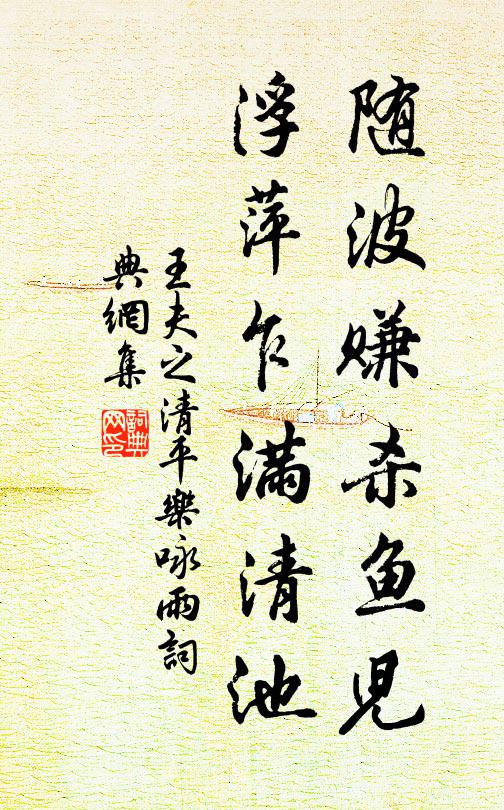 随波赚杀鱼児
浮萍乍满清池
王夫之清平樂咏雨詞
典網集
詞典网印